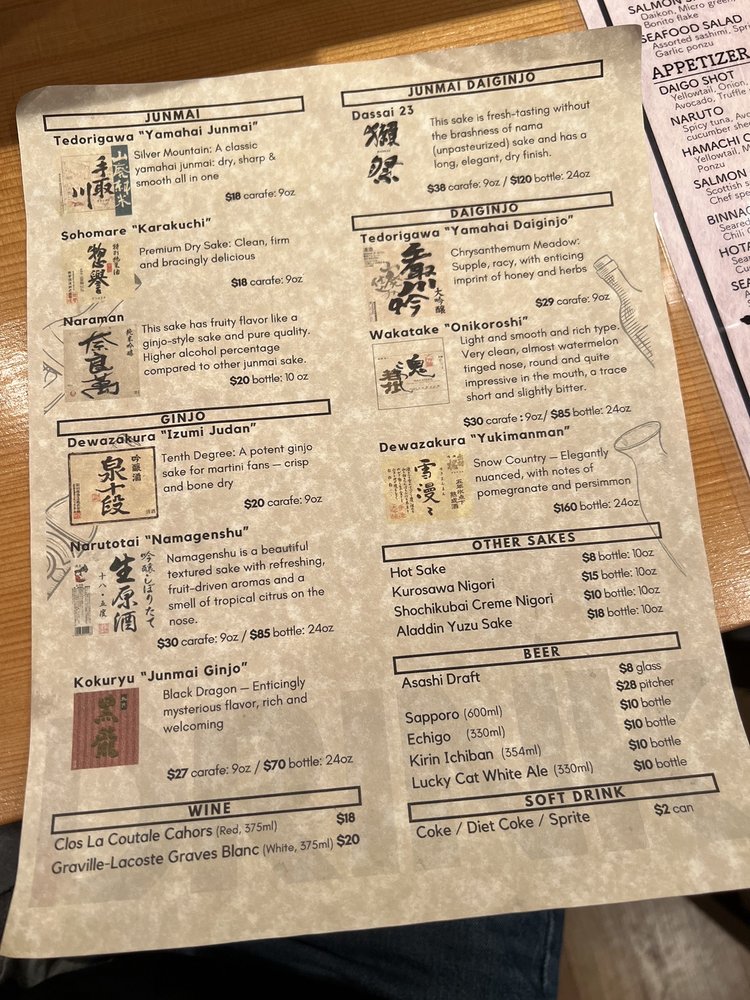 JUNMAI
Tedorigawa “Yamahai Junmai”
山廃純米
手取川
Silver Mountain: A classic
yamahai junmai: dry, sharp &
smooth all in one
$18 carafe: 9oz
Sohomare “Karakuchi”
惣誉
Premium Dry Sake: Clean, firm
and bracingly delicious
$18 carafe: 9oz
Naraman
純米吟醸
奈良萬
This sake has fruity flavor like a
ginjo-style sake and pure quality.
Higher alcohol percentage
compared to other junmai sake.
$20 bottle: 10 oz
GINJO
Dewazakura “Izumi Judan”
吟醸酒
泉十段
Tenth Degree: A potent ginjo
sake for martini fans — crisp
and bone dry
$20 carafe: 9oz
Narutotai “Namagenshu”
吟醸・しぼりたて
生原酒
十八・五度
Namagenshu is a beautiful
textured sake with refreshing,
fruit-driven aromas and a
smell of tropical citrus on the
nose.
$30 carafe: 9oz / $85 bottle: 24oz
Kokuryu “Junmai Ginjo”
黒龍
Black Dragon — Enticingly
mysterious flavor, rich and
welcoming
$27 carafe: 9oz / $70 bottle: 24oz
WINE
Clos La Coutale Cahors (Red, 375ml) $18
Graville-Lacoste Graves Blanc (White, 375ml) $20
JUNMAI DAIGINJO
Dassai 23
獺祭
This sake is fresh-tasting without
the brashness of nama
(unpasteurized) sake and has a
long, elegant, dry finish.
$38 carafe: 9oz / $120 bottle: 24oz
DAIGINJO
Tedorigawa “Yamahai Daiginjo”
大吟醸
Chrysanthemum Meadow:
Supple, racy, with enticing
imprint of honey and herbs
$29 carafe: 9oz
Wakatake “Onikoroshi”
鬼
Light and smooth and rich type.
Very clean, almost watermelon
tinged nose, round and quite
impressive in the mouth, a trace
short and slightly bitter.
$30 carafe : 9oz/ $85 bottle: 24oz
Dewazakura “Yukimanman”
雪漫々
Snow Country — Elegantly
nuanced, with notes of
pomegranate and persimmon
$160 bottle: 24oz
OTHER SAKES
Hot Sake $8 bottle: 10oz
Kurosawa Nigori $15 bottle: 10oz
Shochikubai Creme Nigori $10 bottle: 10oz
Aladdin Yuzu Sake $18 bottle: 10oz
BEER
Asashi Draft $8 glass
$28 pitcher
Sapporo (600ml) $10 bottle
Echigo (330ml) $10 bottle
Kirin Ichiban (354ml) $10 bottle
Lucky Cat White Ale (330ml) $10 bottle
SOFT DRINK
Coke / Diet Coke / Sprite $2 can
SALMON
Daikon, Micro
Bonito flake
SEAFOOD SALAD
Assorted sashimi,
Garlic ponzu
APPETIZER
DAIGO SHOT
Yellowtail, Onion,
Avocado, Truffle
NARUTO
Spicy tuna,
cucumber
HAMACHI
Yellowtail,
Ponzu
SALMON
Scottish
Chef
Seared
Chili
Seared